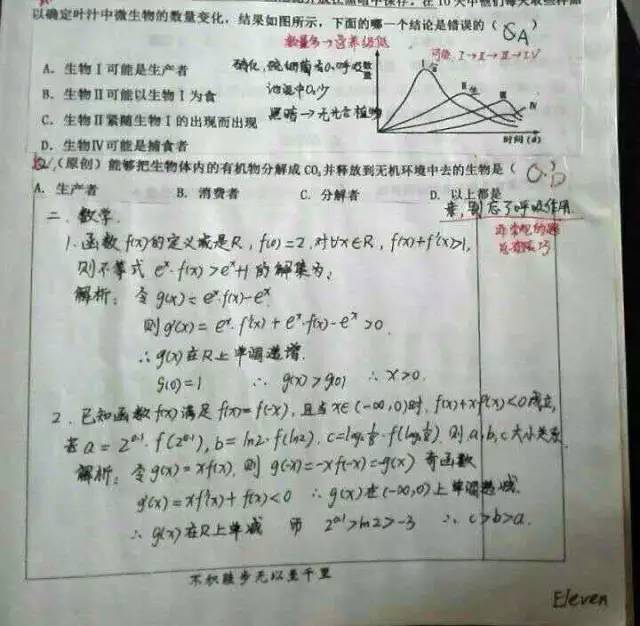 以确定叶汁中微生物的数量变化，结果如图所示，下面的哪一个结论是错误的（ A
数量多→营养级低
可能 I→II→III→IV
A. 生物 I 可能是生产者
B. 生物II可能以生物 I 为食
C. 生物II紧随生物 I 的出现而出现
D. 生物IV可能是捕食者
黑暗→无光合植物
数量
I
II
III
IV
时间(d)
（原创）能够把生物体内的有机物分解成 CO₂并释放到无机环境中去的生物是（ D
A. 生产者 B. 消费者 C. 分解者 D. 以上都是
别忘了呼吸作用
二、数学.
1. 函数 f(x) 的定义域是R，f(0)=2，对∀x∈R，f(x)+f'(x)>1，
则不等式 eˣ·f(x)>eˣ+1 的解集为：
解析：令 g(x)=eˣ·f(x)-eˣ
则 g'(x)=eˣ·f'(x)+eˣ·f(x)-eˣ>0
∴g(x)在R上单调递增.
g(0)=1 ∴ g(x)>g(0) ∴ x>0.
2. 已知函数 f(x) 满足 f(x)=f(-x)，且当 x∈(-∞,0)时，f(x)+xf'(x)<0成立，
若 a=2^0.1·f(2^0.1)，b=ln2·f(ln2)，c=log₂⅛·f(log₂⅛)，则 a,b,c 大小关系
解析：令g(x)=xf(x)，则 g(-x)=-xf(-x)=-g(x) 奇函数
g'(x)=xf'(x)+f(x)<0 ∴g(x)在(-∞,0)上单调递减.
∴g(x)在R上单减 而 2^0.1>ln2>-3 ∴ c>b>a.
不积跬步无以至千里
Eleven